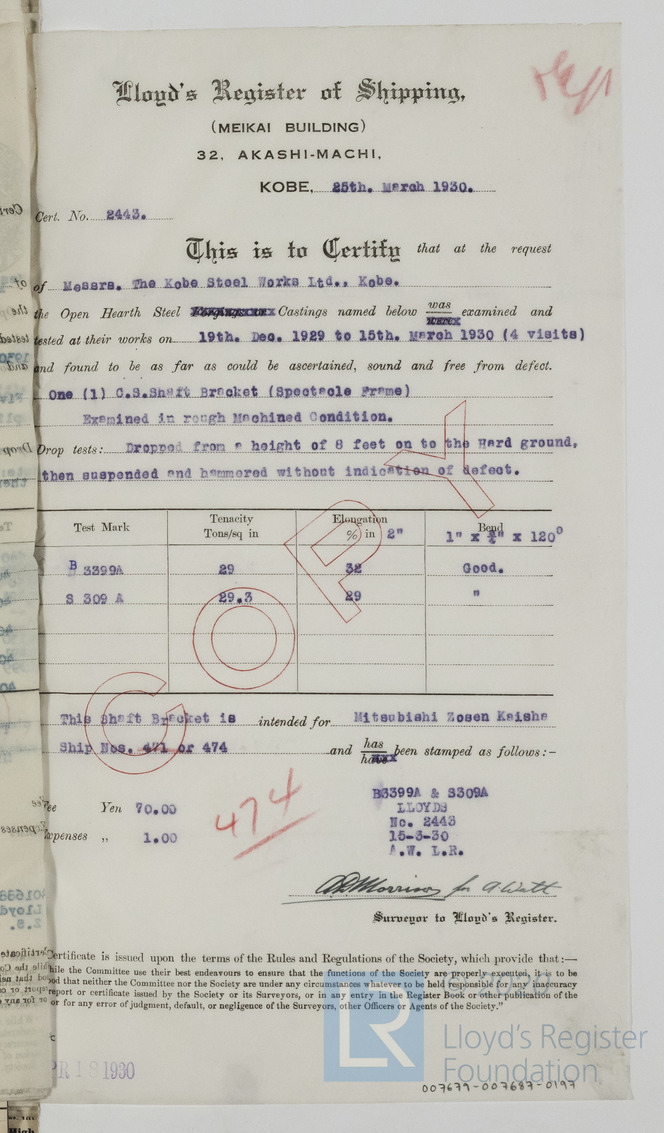 Lloyd's Register of Shipping,
(MEIKAI BUILDING)
32, AKASHI-MACHI,
KOBE, 25th. March 1930.
Cert. No. 2443.
This is to Certify that at the request
of Messrs. The Kobe Steel Works Ltd., Kobe.
the Open Hearth Steel Castings named below was examined and
tested at their works on 19th. Dec. 1929 to 15th. March 1930 (4 visits)
and found to be as far as could be ascertained, sound and free from defect.
One (1) C.S.Shaft Bracket (Spectacle Frame)
Examined in rough Machined Condition.
Drop tests: Dropped from a height of 8 feet on to the Hard ground,
then suspended and hammered without indication of defect.
Test Mark Tenacity Tons/sq in Elongation %) in 2" Bend 1" x ¾" x 120°
B 3399A 29 32 Good.
S 309 A 29.3 29 "
COPY
This Shaft Bracket is intended for Mitsubishi Zosen Kaisha
Ship Nos. 471 or 474 and has been stamped as follows:-
have
B3399A & S309A
Fee Yen 70.00 LLOYDS
474 No. 2443
Expenses „ 1.00 15-3-30
A.W. L.R.
Morrison for A Watt
Surveyor to Lloyd's Register.
Certificate is issued upon the terms of the Rules and Regulations of the Society, which provide that:—
while the Committee use their best endeavours to ensure that the functions of the Society are properly executed, it is to be
ood that neither the Committee nor the Society are under any circumstances whatever to be held responsible for any inaccuracy
report or certificate issued by the Society or its Surveyors, or in any entry in the Register Book or other publication of the
or for any error of judgment, default, or negligence of the Surveyors, other Officers or Agents of the Society."
© 2020
PR 18 1930
LR
Lloyd's Register
Foundation
007679-007687-0197